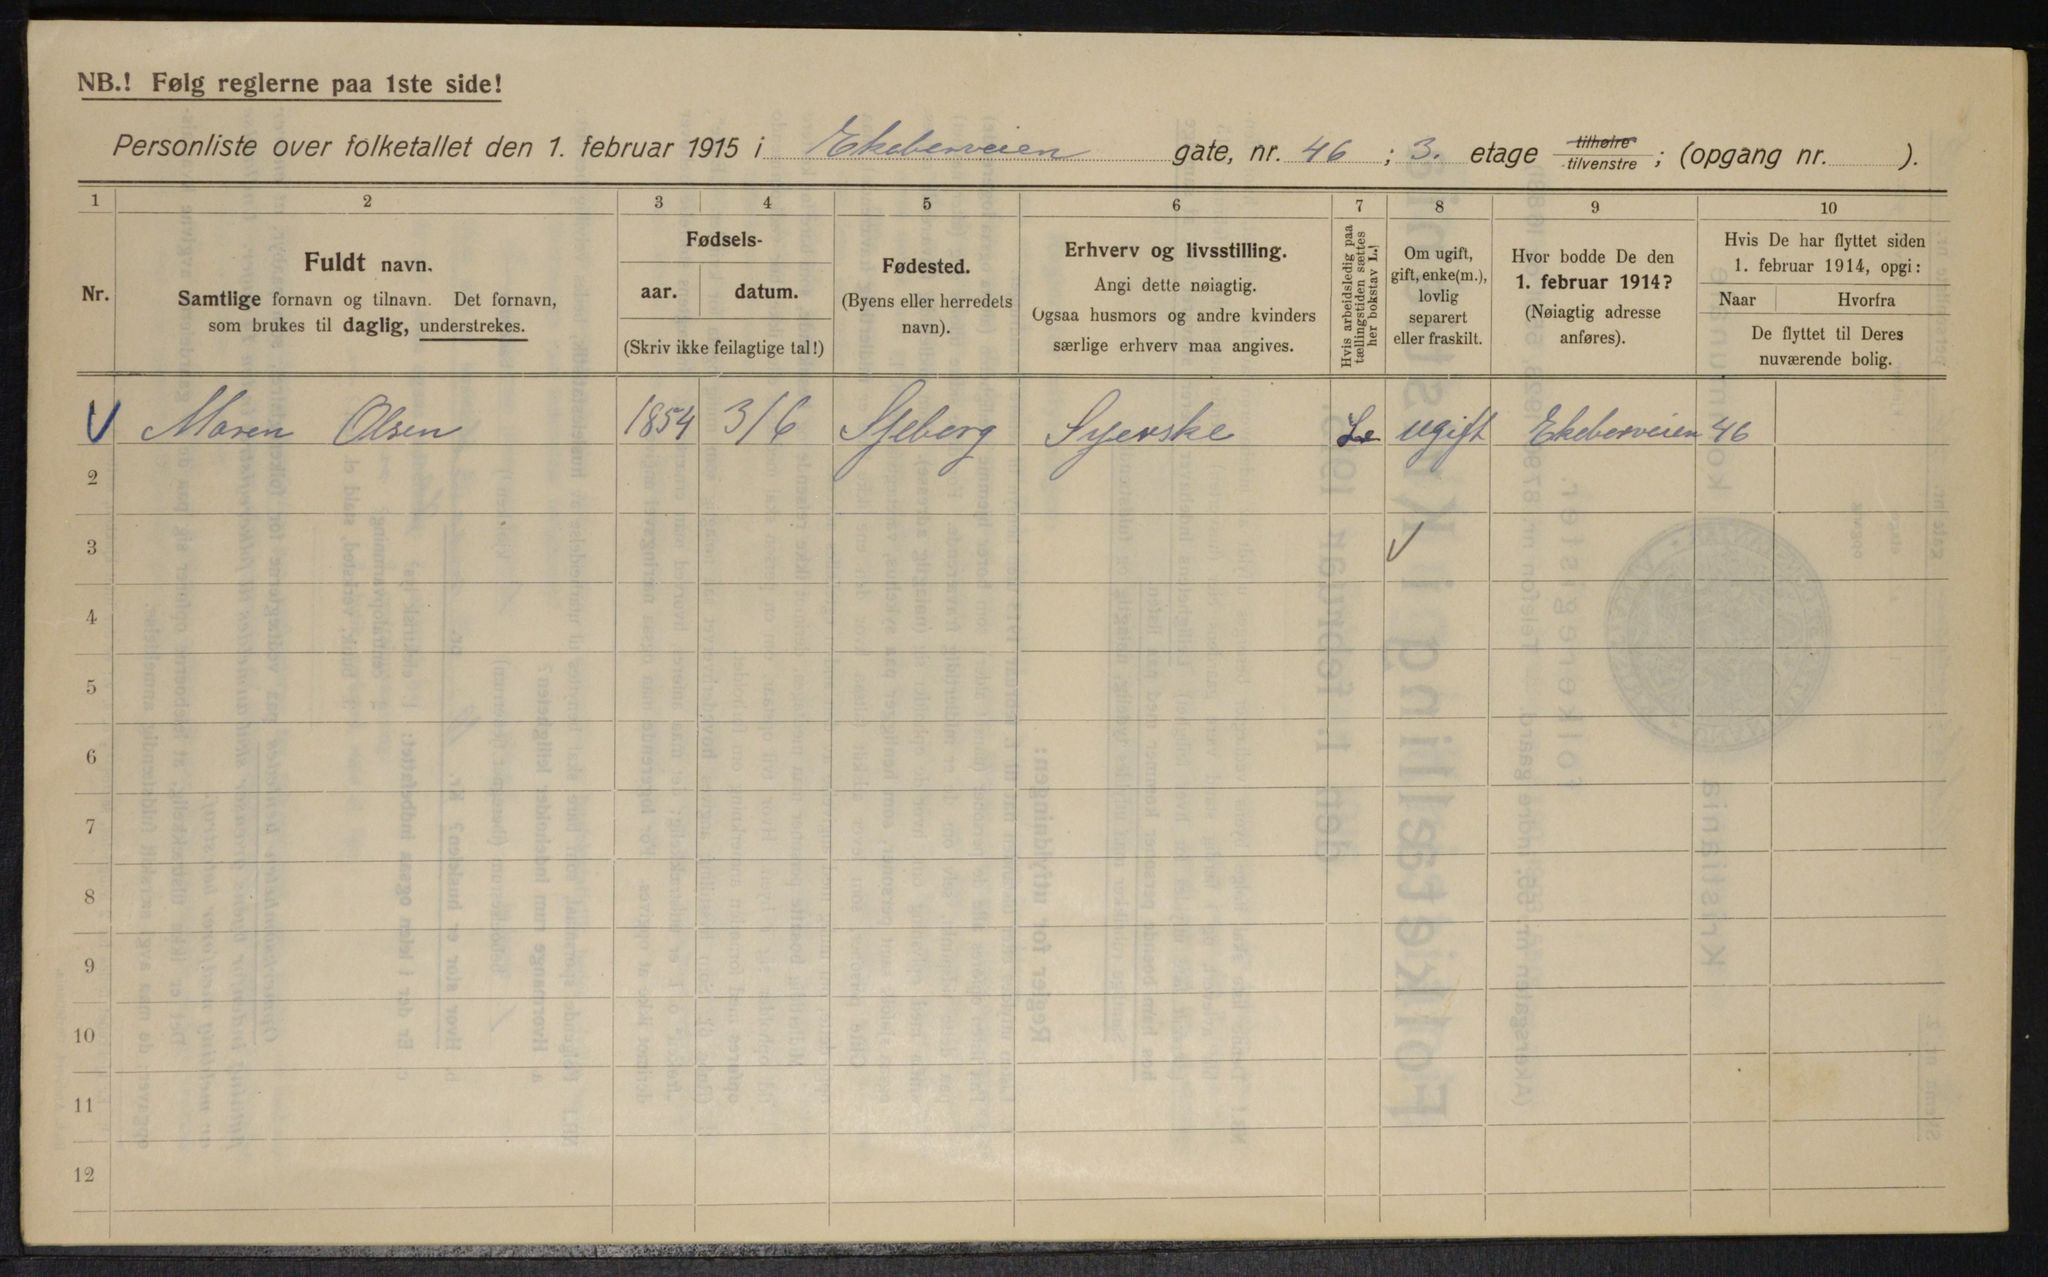 NB.! Følg reglerne paa 1ste side!
Personliste over folketallet den 1. februar 1915 i Ekeberveien gate, nr. 46 ; 3. etage tilhøire/tilvenstre ; (opgang nr. ).
1 2 3 4 5 6 7 8 9 10
Nr.
Fuldt navn.
Samtlige fornavn og tilnavn. Det fornavn,
som brukes til daglig, understrekes.
Fødsels-
aar. datum.
(Skriv ikke feilagtige tal!)
Fødested.
(Byens eller herredets
navn).
Erhverv og livsstilling.
Angi dette nøiagtig.
Ogsaa husmors og andre kvinders
særlige erhverv maa angives.
Hvis arbeidsledig paa
tællingstiden sættes
her bokstav L.!
Om ugift,
gift, enke(m.),
lovlig
separert
eller fraskilt.
Hvor bodde De den
1. februar 1914?
(Nøiagtig adresse
anføres).
Hvis De har flyttet siden
1. februar 1914, opgi:
Naar Hvorfra
De flyttet til Deres
nuværende bolig.
Maren Olsen 1854 3/6 Syerske ugift Ekeberveien 46
2
3
4
5
6
7
8
9
10
11
12